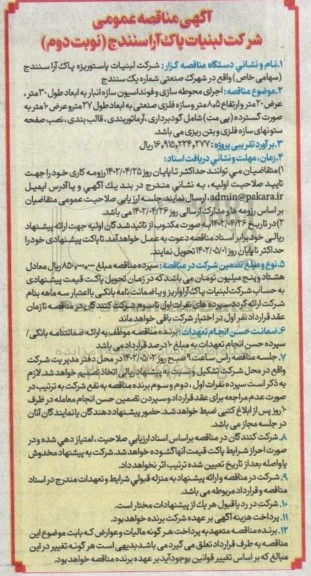 آگهی مناقصه عمومی
شرکت لبنیات پاک آرا سنندج (نوبت دوم)
۱.نام و نشانی دستگاه مناقصه گزار: شرکت لبنیات پاستوریزه پاک آرا سنندج
(سهامی خاص) واقع در شهرک صنعتی شماره یک سنندج
۲.موضوع مناقصه: اجرای محوطه سازی و فونداسیون سازه انبار به ابعاد طول ۳۰ متر،
عرض ۲۰ متر و ارتفاع ۸٫۰۵ متر و سازه فلزی صنعتی به ابعاد طول ۲۷ متر و عرض ۱۰ متر به
صورت گسترده (پی مت) شامل گودبرداری، آرماتوربندی، قالب بندی، نصب صفحه
ستونهای سازه فلزی و بتن ریزی می باشد.
۳.برآورد تقریبی پروژه: ۱۶,۹۱۵,۲۲۴,۲۷۷ ریال
۴.زمان، مهلت و نشانی دریافت اسناد:
۱) متقاضیان می توانند حداکثر تا پایان روز ۱۴۰۲/۰۴/۲۵ رزومه کاری خود را جهت
تایید صلاحیت اولیه، به نشانی مندرج در بند یک آگهی و یا آدرس ایمیل
admin@pakara.ir، ارسال نمایند؛ جلسه ارزیابی صلاحیت عمومی متقاضیان
بر اساس رزومه ها و مدارک ارسالی روز ۱۴۰۲/۰۴/۲۶ می باشد.
۲) در تاریخ ۱۴۰۲/۰۴/۲۶ به صورت مکتوب از تائید شدگان اولیه جهت ارائه پیشنهاد
ریالی خود برابر اسناد مناقصه دعوت به عمل خواهد آمد تا پاکت پیشنهادی خود را
حداکثر تا پایان روز ۱۴۰۲/۰۵/۰۱ تحویل نمایند.
۵.نوع و مبلغ تضمین شرکت در مناقصه: سپرده مناقصه مبلغ ۸۵۰,۰۰۰,۰۰۰ ریال معادل
هشتاد و پنج میلیون تومان می باشد که در زمان تحویل پاکت قیمت پیشنهادی
به حساب شرکت لبنیات پاک آرا واریز و یا ضمانت نامه بانکی با اعتبار سه ماهه بنام
شرکت ارائه گردد سپرده های نفرات اول تا سوم شرکت کنندگان در مناقصه تا زمان
عقد قرارداد نفر اول در اختیار شرکت باقی خواهد ماند
۶.ضمانت حسن انجام تعهدات: برنده مناقصه موظف به ارائه ضمانتنامه بانکی/
سپرده حسن انجام تعهدات به مبلغ ۱۰ درصد قرارداد می باشد
۷. جلسه مناقصه راس ساعت ۹ صبح روز ۱۴۰۲/۰۵/۰۲ در محل دفتر مدیریت شرکت
واقع در محل شرکت تشکیل و نسبت به پیشنهاد ریالی اتخاذ تصمیم خواهد شد. لازم
به ذکر است سپرده نفرات اول، دوم و سوم برنده مناقصه به نفع شرکت به ترتیب در
صورت عدم مراجعه برای عقد قرارداد و سپردن تضمین حسن انجام معامله در ظرف
۱۰ روز پس از ابلاغ کتبی ضبط خواهد شد. حضور پیشنهاد دهندگان یا نمایندگان آنان
در جلسه مجاز می باشد.
۸. شرکت کنندگان در مناقصه بر اساس اسناد ارزیابی صلاحیت، امتیاز دهی شده و در
صورت احراز شرایط پاکت قیمت آنها گشوده خواهد شد. شرکت به پیشنهاد مخدوش
یا واصله بعد از تاریخ تعیین شده ترتیب اثر نخواهد داد.
۹. شرکت در مناقصه و ارائه پیشنهاد به منزله قبولی شرایط و تعهدات مندرج در اسناد
مناقصه و قرارداد مربوطه می باشد.
۱۰. شرکت در رد یا قبول هر یک از پیشنهادات مختار است.
۱۱. پرداخت هزینه آگهی بر عهده شرکت برنده خواهد بود.
۱۲. برنده مناقصه متعهد به پرداخت هر گونه مالیات و عوارض که بابت موضوع این
مناقصه به طرف قرارداد تعلق می گیرد می باشد بدیهی است هر گونه تغییر در این
مبالغ که بر اساس تغییر قوانین بوجود آید بر عهده برنده مناقصه خواهد بود.